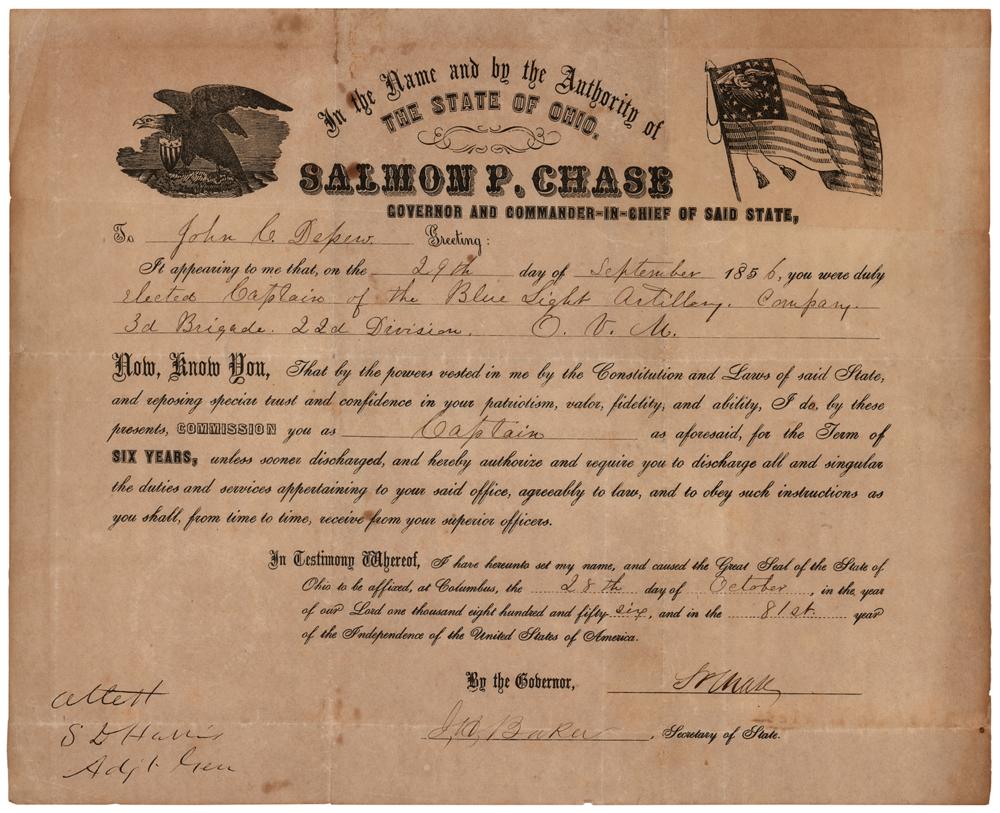 In the Name and by the Authority of
THE STATE OF OHIO.
SALMON P. CHASE
GOVERNOR AND COMMANDER-IN-CHIEF OF SAID STATE,
To John C. Depew. Greeting:
It appearing to me that, on the 29th day of September 1856, you were duly
elected Captain of the Blue Light Artillery. Company.
3d Brigade. 22d Division. O. V. M.
Now, Know You, That by the powers vested in me by the Constitution and Laws of said State,
and reposing special trust and confidence in your patriotism, valor, fidelity, and ability, I do, by these
presents, COMMISSION you as Captain as aforesaid, for the Term of
SIX YEARS, unless sooner discharged, and hereby authorize and require you to discharge all and singular
the duties and services appertaining to your said office, agreeably to law, and to obey such instructions as
you shall, from time to time, receive from your superior officers.
In Testimony Whereof, I have hereunto set my name, and caused the Great Seal of the State of
Ohio to be affixed, at Columbus, the 28th day of October, in the year
of our Lord one thousand eight hundred and fifty six, and in the 81st. year
of the Independence of the United States of America.
By the Governor, S P Chase
Baker, Secretary of State.
Attest
S D Harris
Adjt. Gen